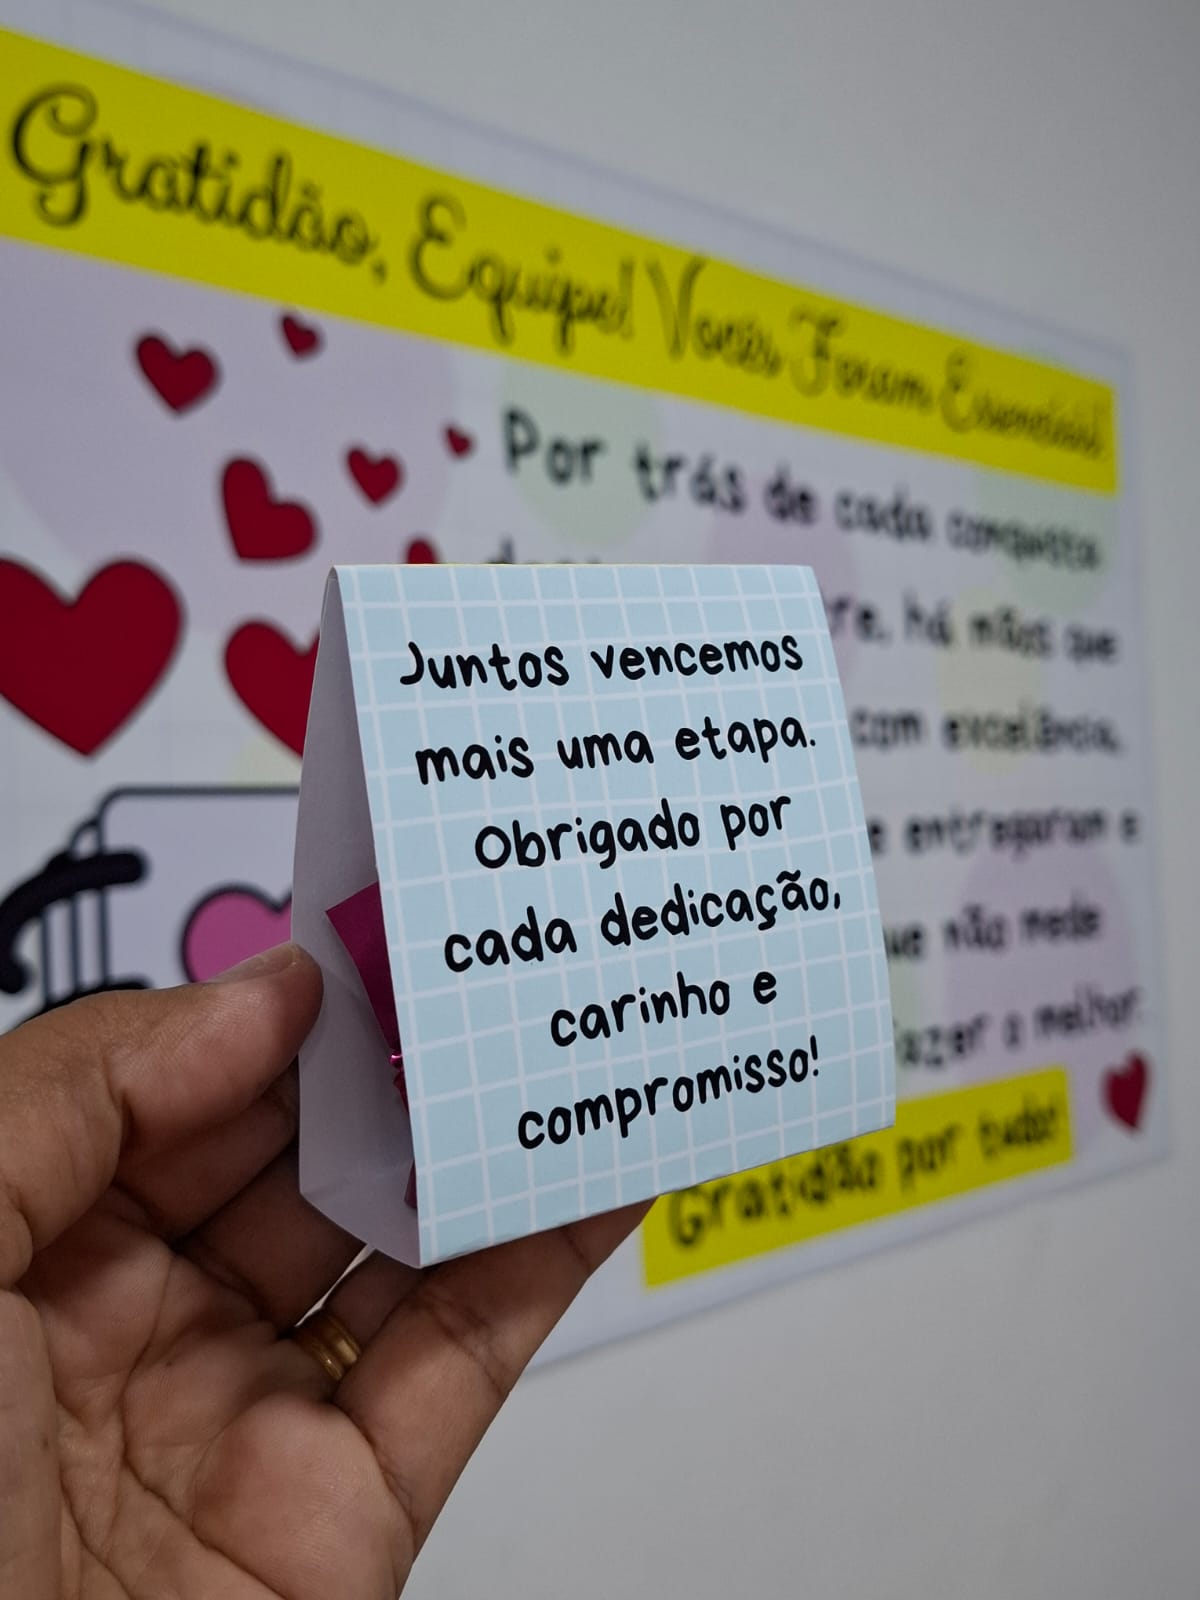 Gratidão, Equipe! Vocês Foram Essenciais!
Por trás de cada conquista
re, há mãos que
com excelência,
e entregaram e
ue não mede
fazer o melhor.
Gratidão por tudo!
Juntos vencemos
mais uma etapa.
Obrigado por
cada dedicação,
carinho e
compromisso!